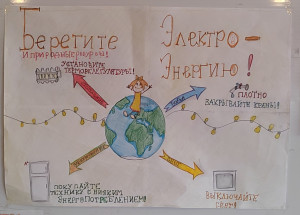 Берегите
Электро-
И природные ресурсы!
Энергию!
Установите
терморегуляторы!
Плотно
закрывайте краны!
Покупайте
технику с низким
энергопотреблением!
Выключайте
свет!